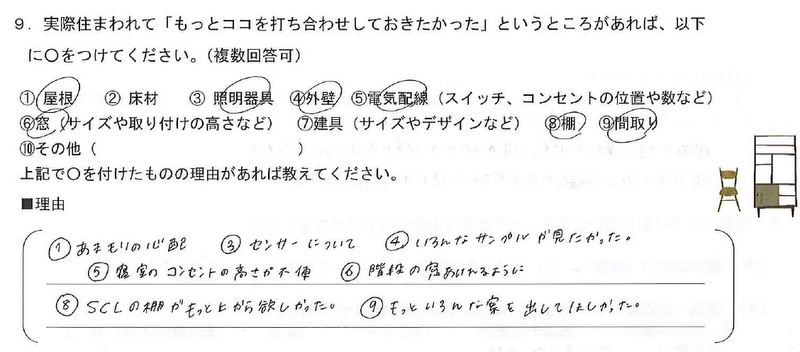 9．実際住まわれて「もっとココを打ち合わせしておきたかった」というところがあれば、以下
に○をつけてください。（複数回答可）
① 屋根　② 床材　③ 照明器具　④外壁　⑤電気配線（スイッチ、コンセントの位置や数など）
⑥窓（サイズや取り付けの高さなど）　⑦建具（サイズやデザインなど）　⑧棚　⑨間取り
⑩その他（　　　　　　　　　　）
上記で○を付けたものの理由があれば教えてください。
■理由
① あまもりの心配　③ センサーについて　④ いろんなサンプルが見たかった。
⑤ 寝室のコンセントの高さが不便　⑥ 階段の窓あいれるように
⑧ SCLの棚がもっと上から欲しかった。　⑨ もっといろんな案を出してほしかった。